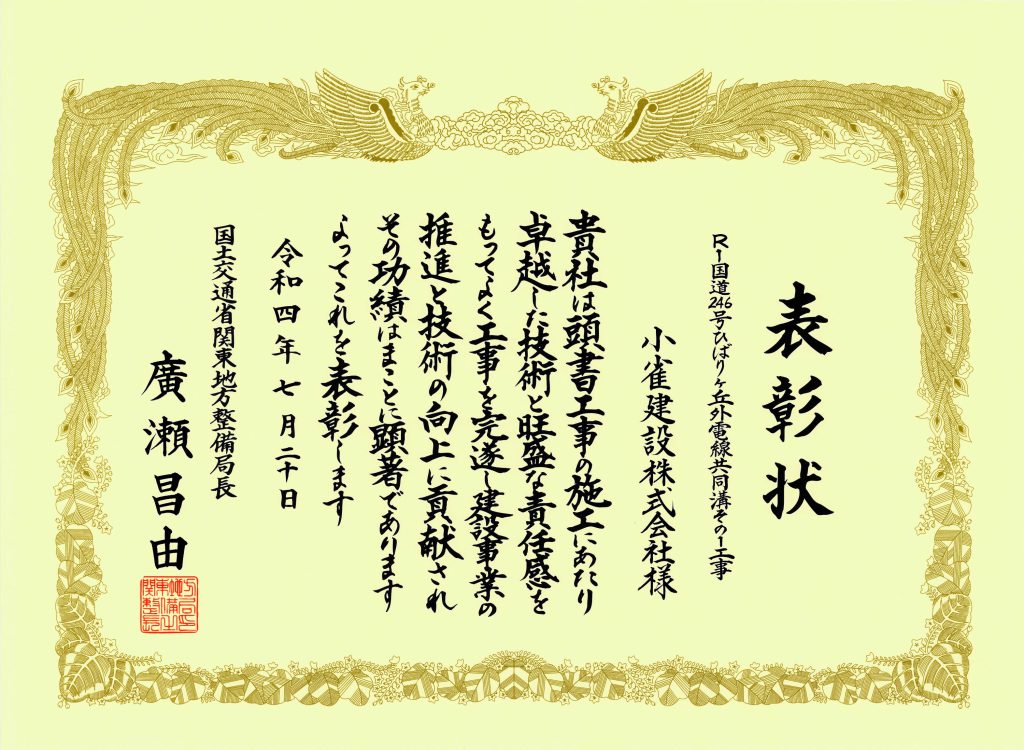 表彰状
R1国道246号ひばりヶ丘外電線共同溝その1工事
小雀建設株式会社様
貴社は頭書工事の施工にあたり
卓越した技術と旺盛な責任感を
もってよく工事を完遂し建設事業の
推進と技術の向上に貢献され
その功績はまことに顕著であります
よってこれを表彰します
令和四年七月二十日
国土交通省関東地方整備局長
廣瀬昌由